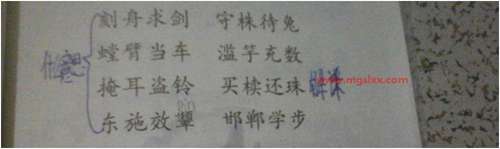 刻舟求剑 守株待兔
螳臂当车 滥竽充数
掩耳盗铃 买椟还珠
www.mgalxx.com
东施效颦 邯郸学步